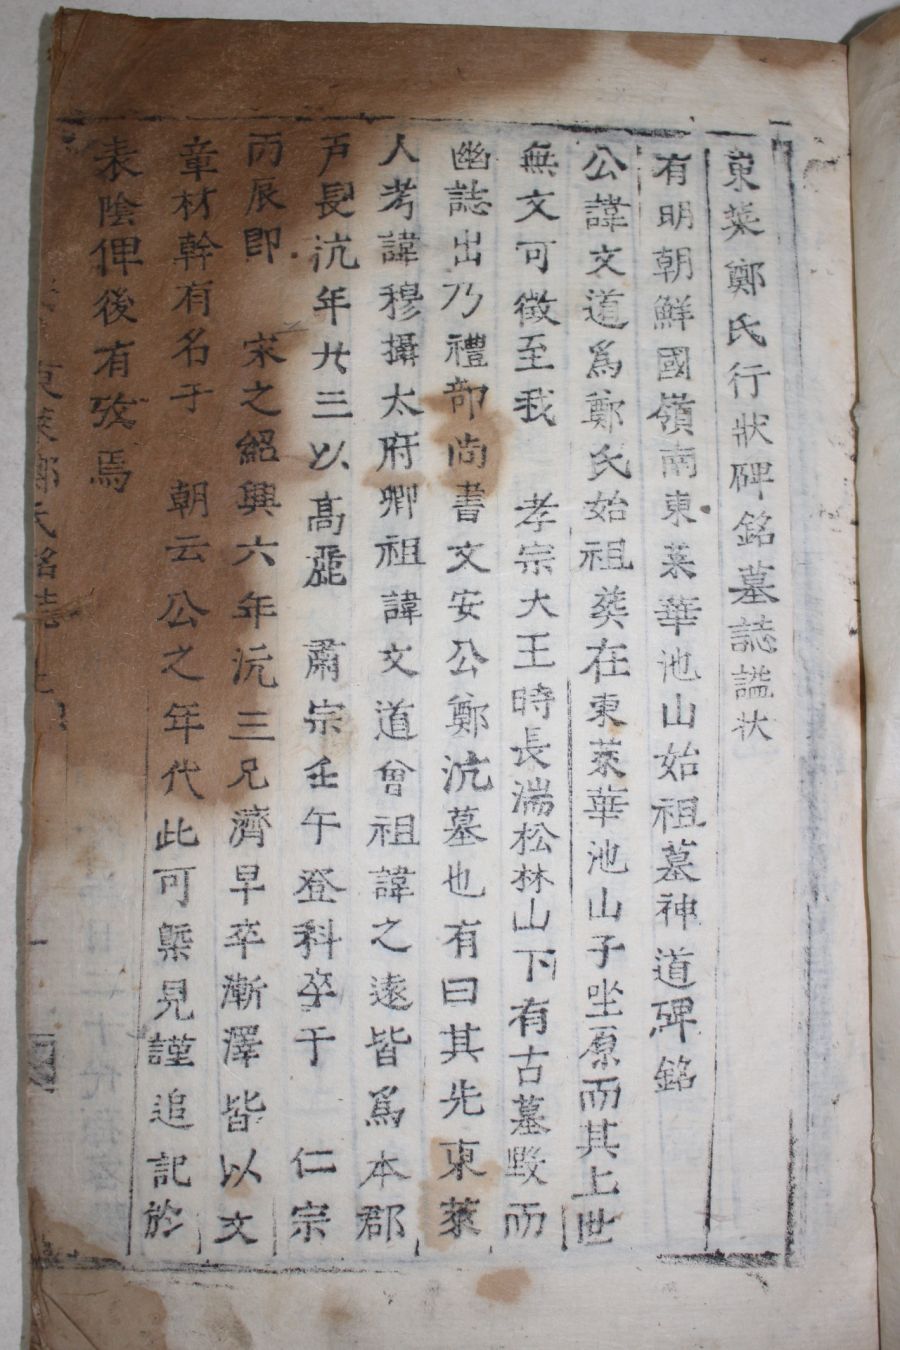 東萊鄭氏行狀碑銘墓誌謚狀
有明朝鮮國嶺南東萊華池山始祖墓神道碑銘
公諱文道爲鄭氏始祖葬在東萊華池山子坐原而其上世
無文可徵至我 孝宗大王時長湍松林山下有古墓毀而
幽誌出乃禮部尚書文安公鄭沆墓也有曰其先東萊
人考諱穆攝太府卿祖諱文道曾祖諱之遠皆爲本郡
戶長沆年廿三以高麗 肅宗壬午登科卒于 仁宗
丙辰即 宋之紹興六年沆三兄濟早卒漸澤皆以文
章材幹有名于 朝云公之年代此可槩見謹追記於
表陰俾後有攷焉
東萊鄭氏銘誌